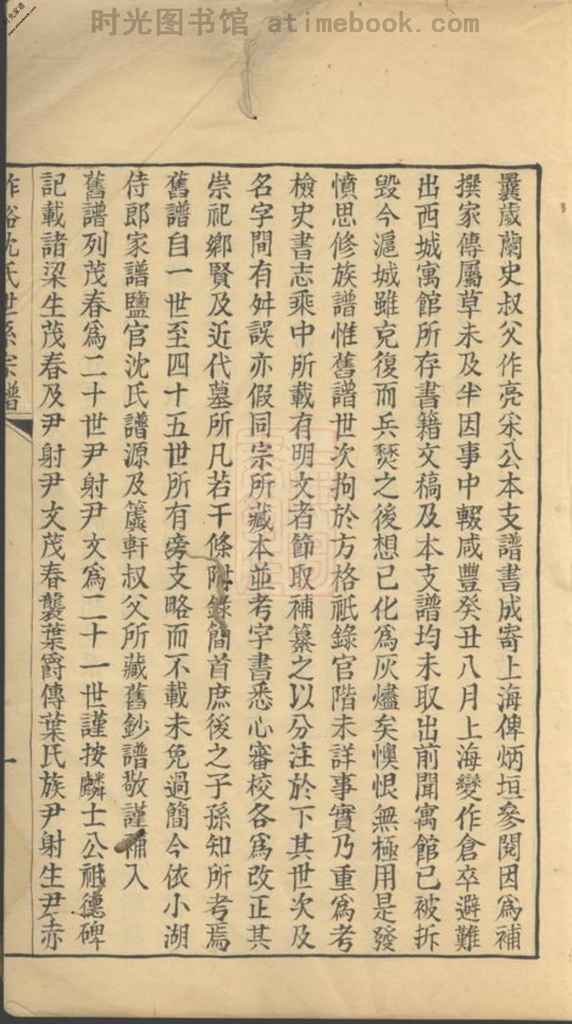 时光图书馆 atimebook.com
曩歲蘭史叔父作亮采公本支譜書成寄上海俾炳垣參閱因爲補
撰家傳屬草未及半因事中輟咸豐癸丑八月上海變作倉卒避難
出西城寓館所存書籍文稿及本支譜均未取出前聞寓館已被拆
毀今滬城雖克復而兵燹之後想已化爲灰燼矣懊恨無極用是發
憤思修族譜惟舊譜世次拘於方格祇錄官階未詳事實乃重爲考
檢史書志乘中所載有明文者節取補纂之以分注於下其世次及
名字間有舛誤亦假同宗所藏本並考字書悉心審校各爲改正其
崇祀鄉賢及近代墓所凡若干條附錄簡首庶後之子孫知所考焉
舊譜自一世至四十五世所有旁支略而不載未免過簡今依小湖
侍郎家譜鹽官沈氏譜源及簾軒叔父所藏舊鈔譜敬謹補入
舊譜列茂春爲二十世尹射尹文爲二十一世謹按麟士公祇德碑
記載諸梁生茂春及尹射尹文茂春襲葉爵傳葉氏族尹射生尹赤
沈氏世系宗譜
一